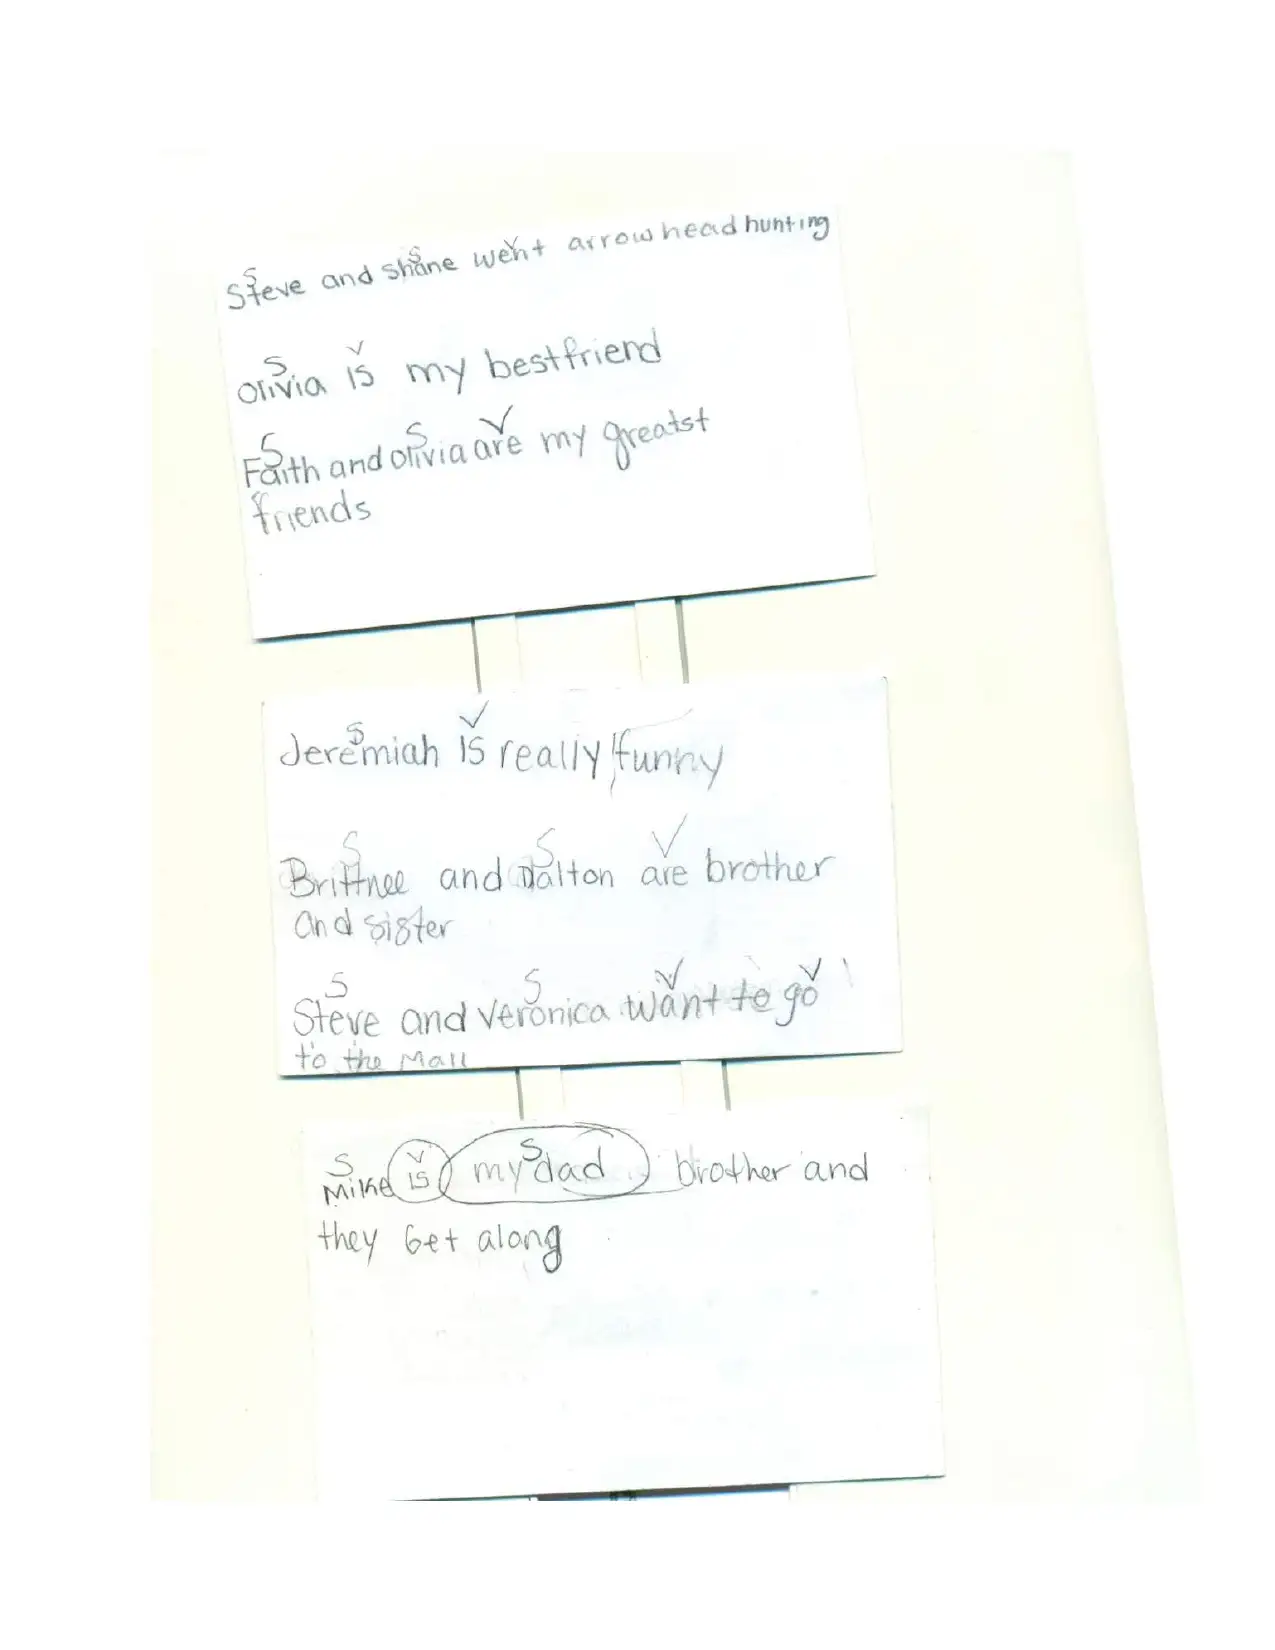 S S V
Steve and shane went arrow head hunting
S V
Olivia is my bestfriend
S S V
Faith and olivia are my greatst
friends
S V
Jeremiah is really funny
S S V
Brittnee and Dalton are brother
and sister
S S V V
Steve and Veronica want to go
to the Mall
S V S
Mike is my dad brother and
they Get along